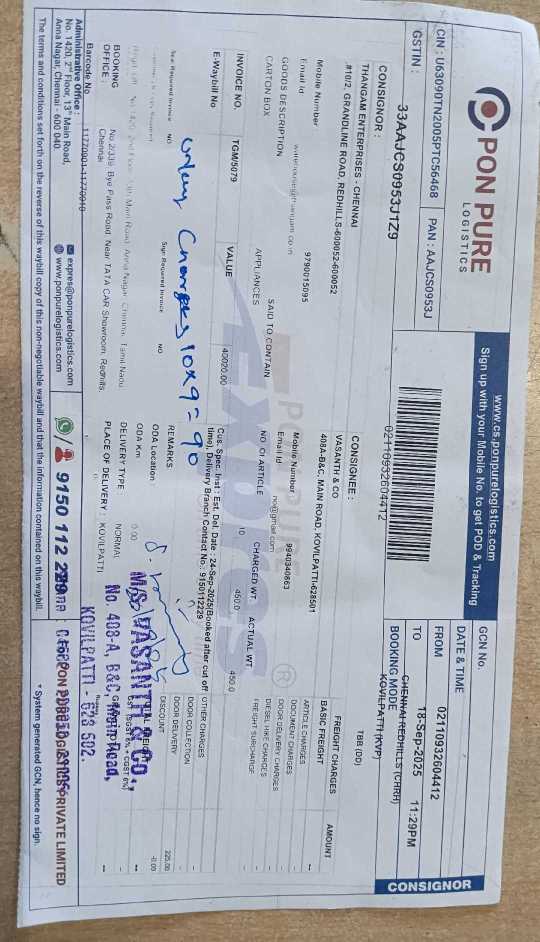 PON PURE
LOGISTICS
www.cs.ponpurelogistics.com
Sign up with your Mobile No. to get POD & Tracking
CIN : U63090TN2005PTC56468
PAN : AAJCS0953J
GSTIN :
33AAJCS0953J1Z9
02110932604412
GCN No.
02110932604412
DATE & TIME
18-Sep-2025 11:29PM
FROM
CHENNAI REDHILLS (CHRH)
TO
KOVILPATTI (KVP)
BOOKING MODE
TBB (DD)
CONSIGNOR
CONSIGNOR :
THANGAM ENTERPRISES - CHENNAI
#10/2, GRANDLINE ROAD, REDHILLS-600052-600052
CONSIGNEE :
VASANTH & CO
408A-B&C, MAIN ROAD, KOVILPATTI-628501
Mobile Number 9790015095
Mobile Number 9940340663
Email Id
Email Id no@gmail.com
GOODS DESCRIPTION
SAID TO CONTAIN
NO. Of ARTICLE
CHARGED WT
ACTUAL WT
CARTON BOX
APPLIANCES
10
450.0
450.0
INVOICE NO.
TGM/5079
VALUE
40020.00
E-Waybill No
Cus. Spec. Inst : Est. Del. Date : 24-Sep-2025(Booked after cut off
time), Delivery Branch Contact No.: 9150112229
FREIGHT CHARGES
AMOUNT
BASIC FREIGHT
ARTICLE CHARGES
DOCUMENT CHARGES
DOOR DELIVERY CHARGES
DIESEL HIKE CHARGES
FREIGHT SURCHARGE
OTHER CHARGES
DOOR COLLECTION
DOOR DELIVERY
225.00
DISCOUNT
-0.00
REMARKS
Seal Required Invoice NO
Sign Required Invoice NO
ODA Location :
ODA Km 0.00
DELIVERY TYPE NORMAL
PLACE OF DELIVERY : KOVILPATTI
Charges 10x9=90
BOOKING
OFFICE :
No.2/339, Bye Pass Road, Near TATA CAR Showroom, Redhills,
Chennai
Barcode No
M/S. VASANTH & CO.,
No. 408-A, B&C, Main Road,
KOVILPATTI - 628 502.
Administrative Office :
No. 1420, 2nd Floor, 13th Main Road,
Anna Nagar, Chennai - 600 040.
expres@ponpurelogistics.com
www.ponpurelogistics.com
9150 112 229
PRIVATE LIMITED
The terms and conditions set forth on the reverse of this waybill copy of this non-negotiable waybill and that the information contained on this waybill.
* System generated GCN, hence no sign.
PON PURE
EXPRES
®